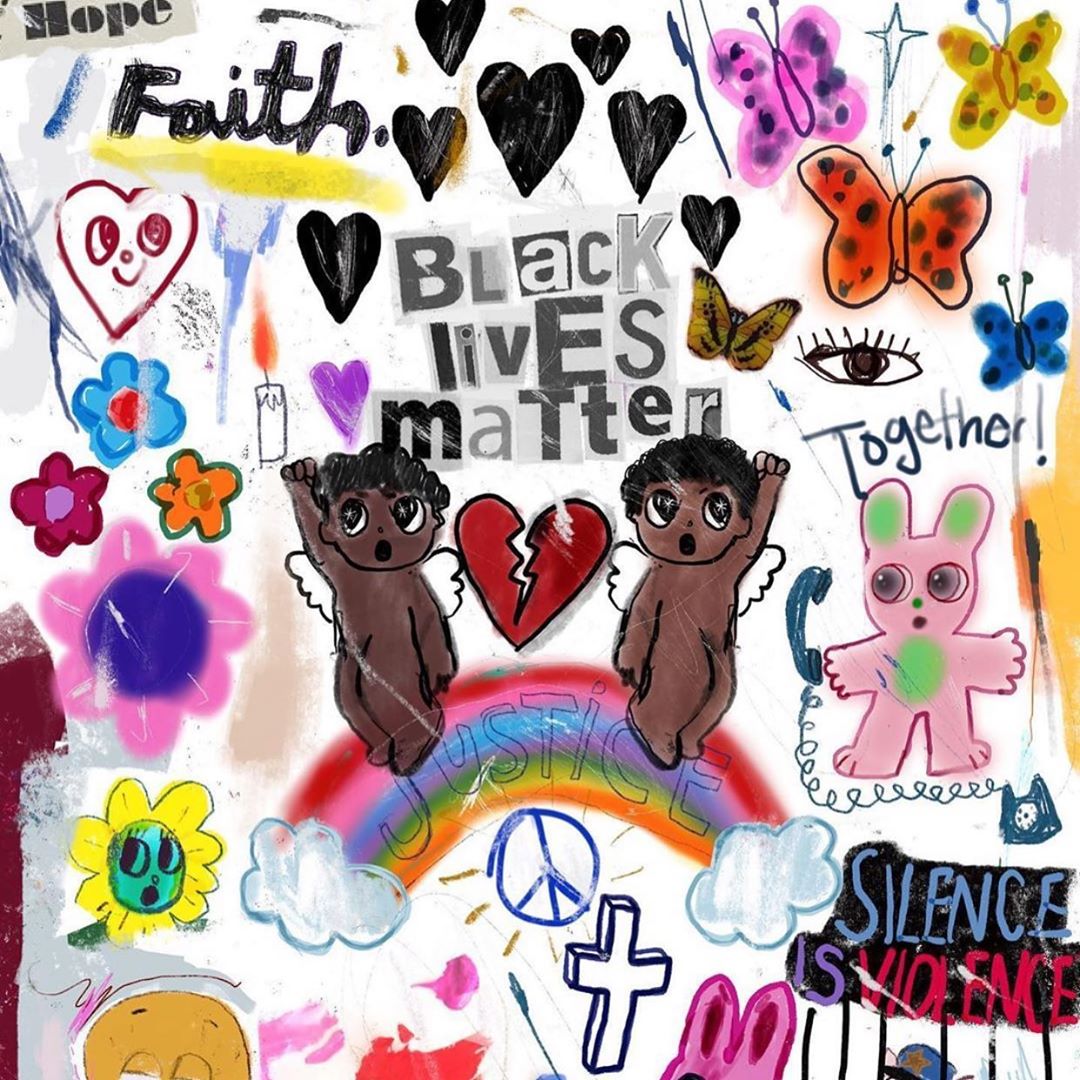 Hope
Faith.
BLacK
livES
maTter
Together!
JUSTiCE
SILENCE
IS VIOLENCE